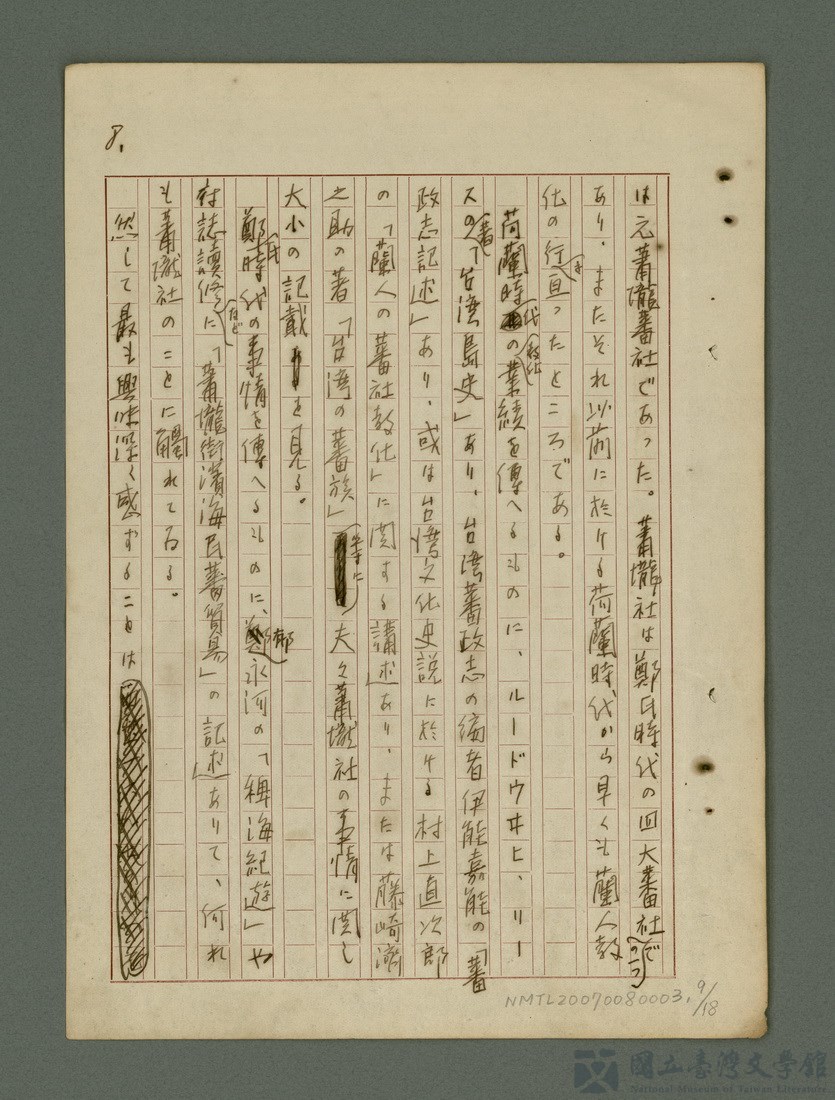 8.
は元蕭壠蕃社であった。蕭壠社は鄭氏時代の四大蕃社の一つで
あり、またそれ以前に於ける荷蘭時代から早くも蘭人教
化の行き亘ったところである。
荷蘭時代の教化業績を傳へるものに、ルードウヰヒ、リー
スの著「台湾島史」あり、台湾蕃政志の編者伊能嘉能の「蕃
政志記述」あり、或は台湾文化史説に於ける村上直次郎
の「蘭人の蕃社教化」に関する講述あり、または藤崎濟
之助の著「台湾の蕃族」等に夫々蕭壠社の事情に関し
大小の記載を見る。
鄭氏時代の事情を傳へるものに、郁永河の「稗海紀遊」や
府誌讀修などに「蕭壠街濱海民蕃貿易」の記述ありて、何れ
も蕭壠社のことに觸れてゐる。
然して最も興味深く感ずることは
NMTL20070080003. 9/18
國立臺灣文學館
National Museum of Taiwan Literature